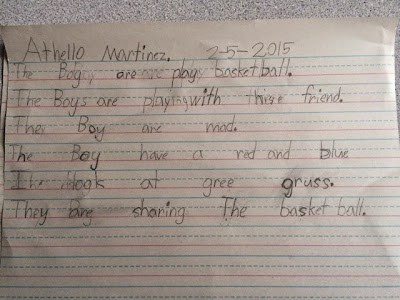 Athello Martinez. 2-5-2015
The Bogy are are plays basket ball.
The Boys are playing with thiere friend.
The Boy are mad.
The Boy have a red and blue
It at gree gruss.
They are sharing The basket ball.